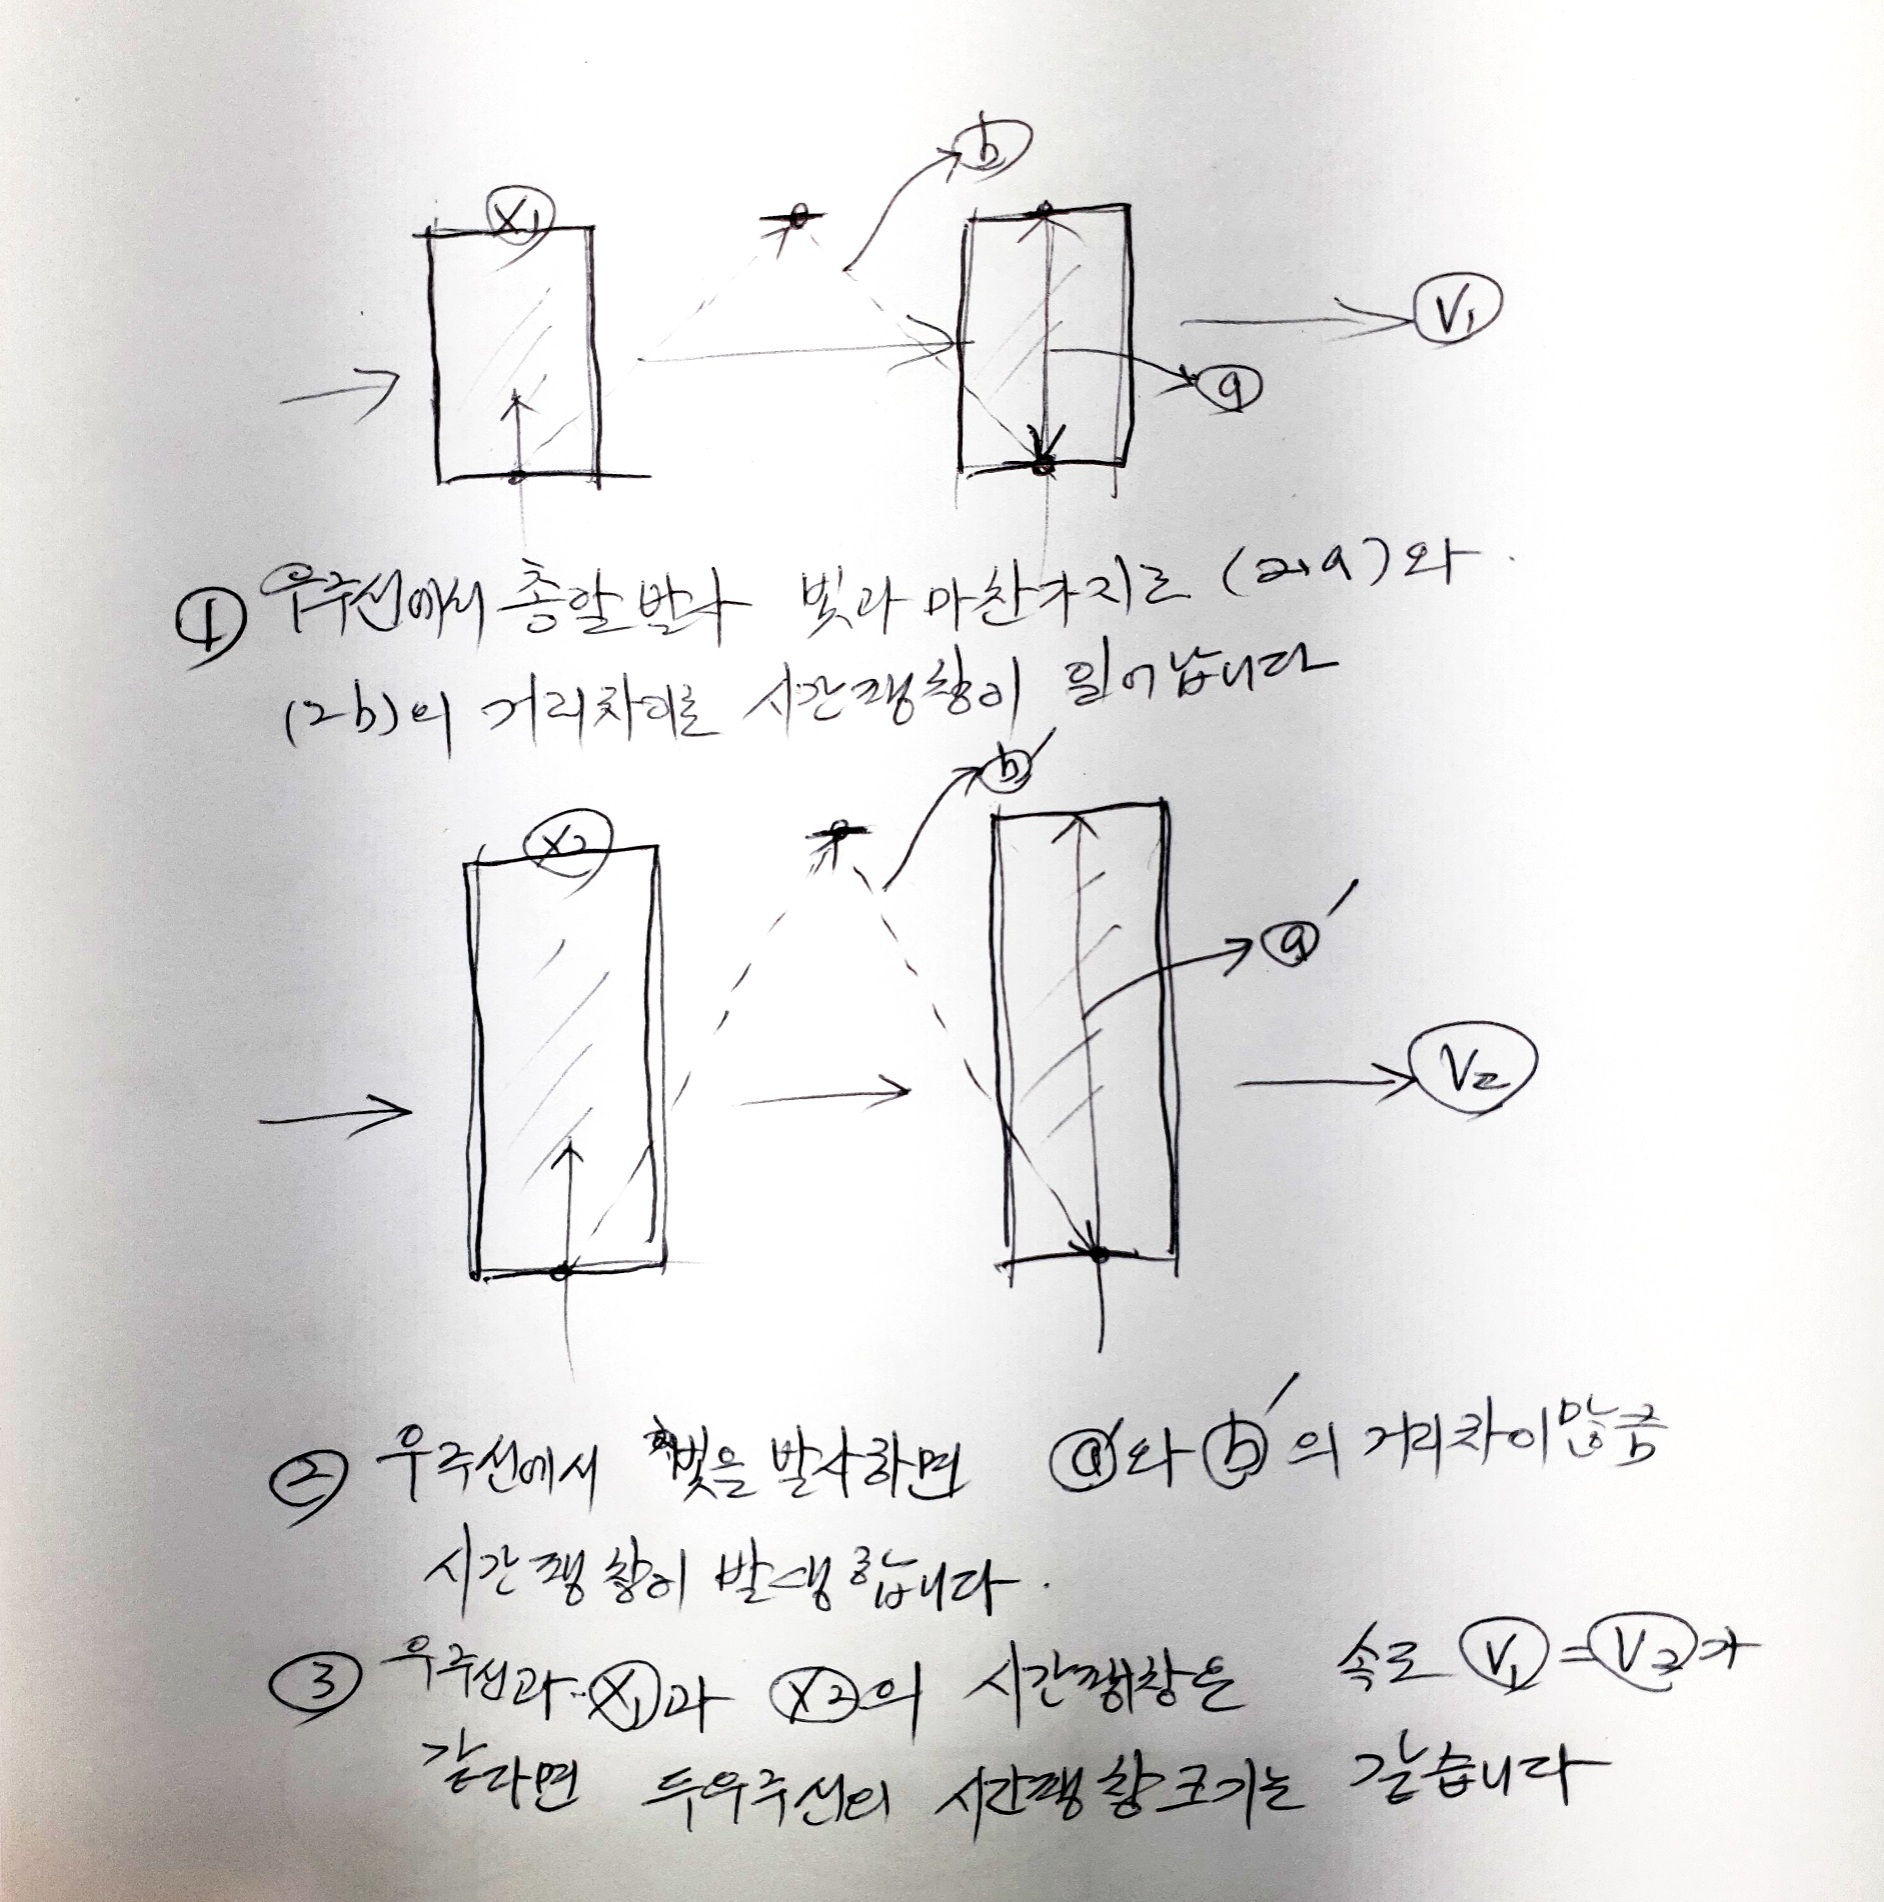 X1
b
V1
a
① 우주선에서 총알발사 빛과 마찬가지로 (2a)와
(2b)의 거리차이로 시간팽창이 일어납니다
b′
X2
a′
V2
② 우주선에서 빛을 발사하면 a′와 b′의 거리차이만큼
시간팽창이 발생합니다.
③ 우주선과 X1과 X2의 시간팽창은 속도 V1=V2가
같다면 두우주선의 시간팽창크기는 같습니다